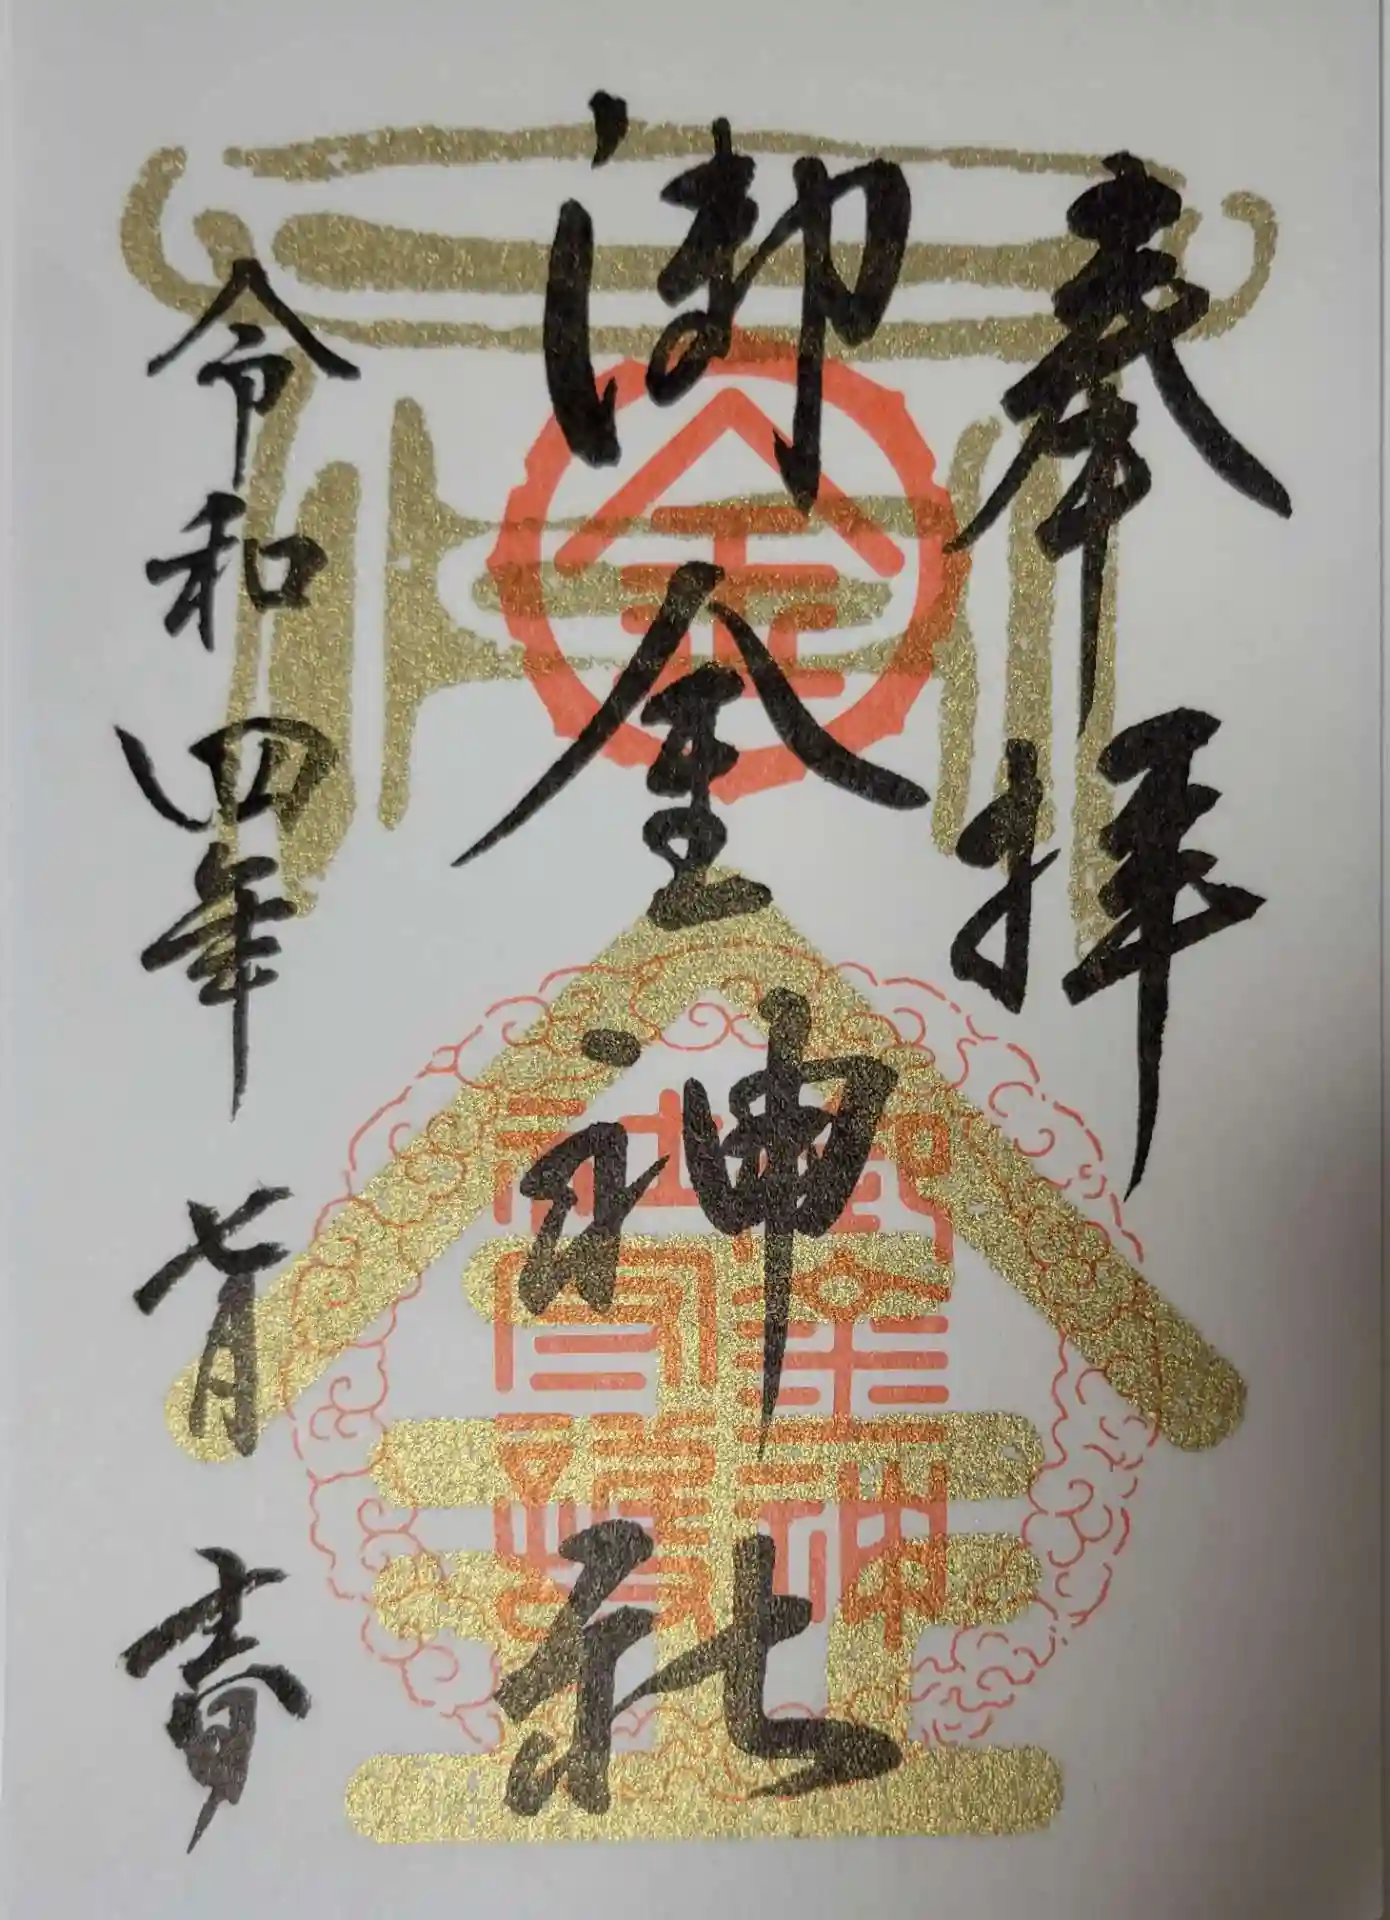 奉拝
御金神社
令和四年七月吉日
金
御金神社